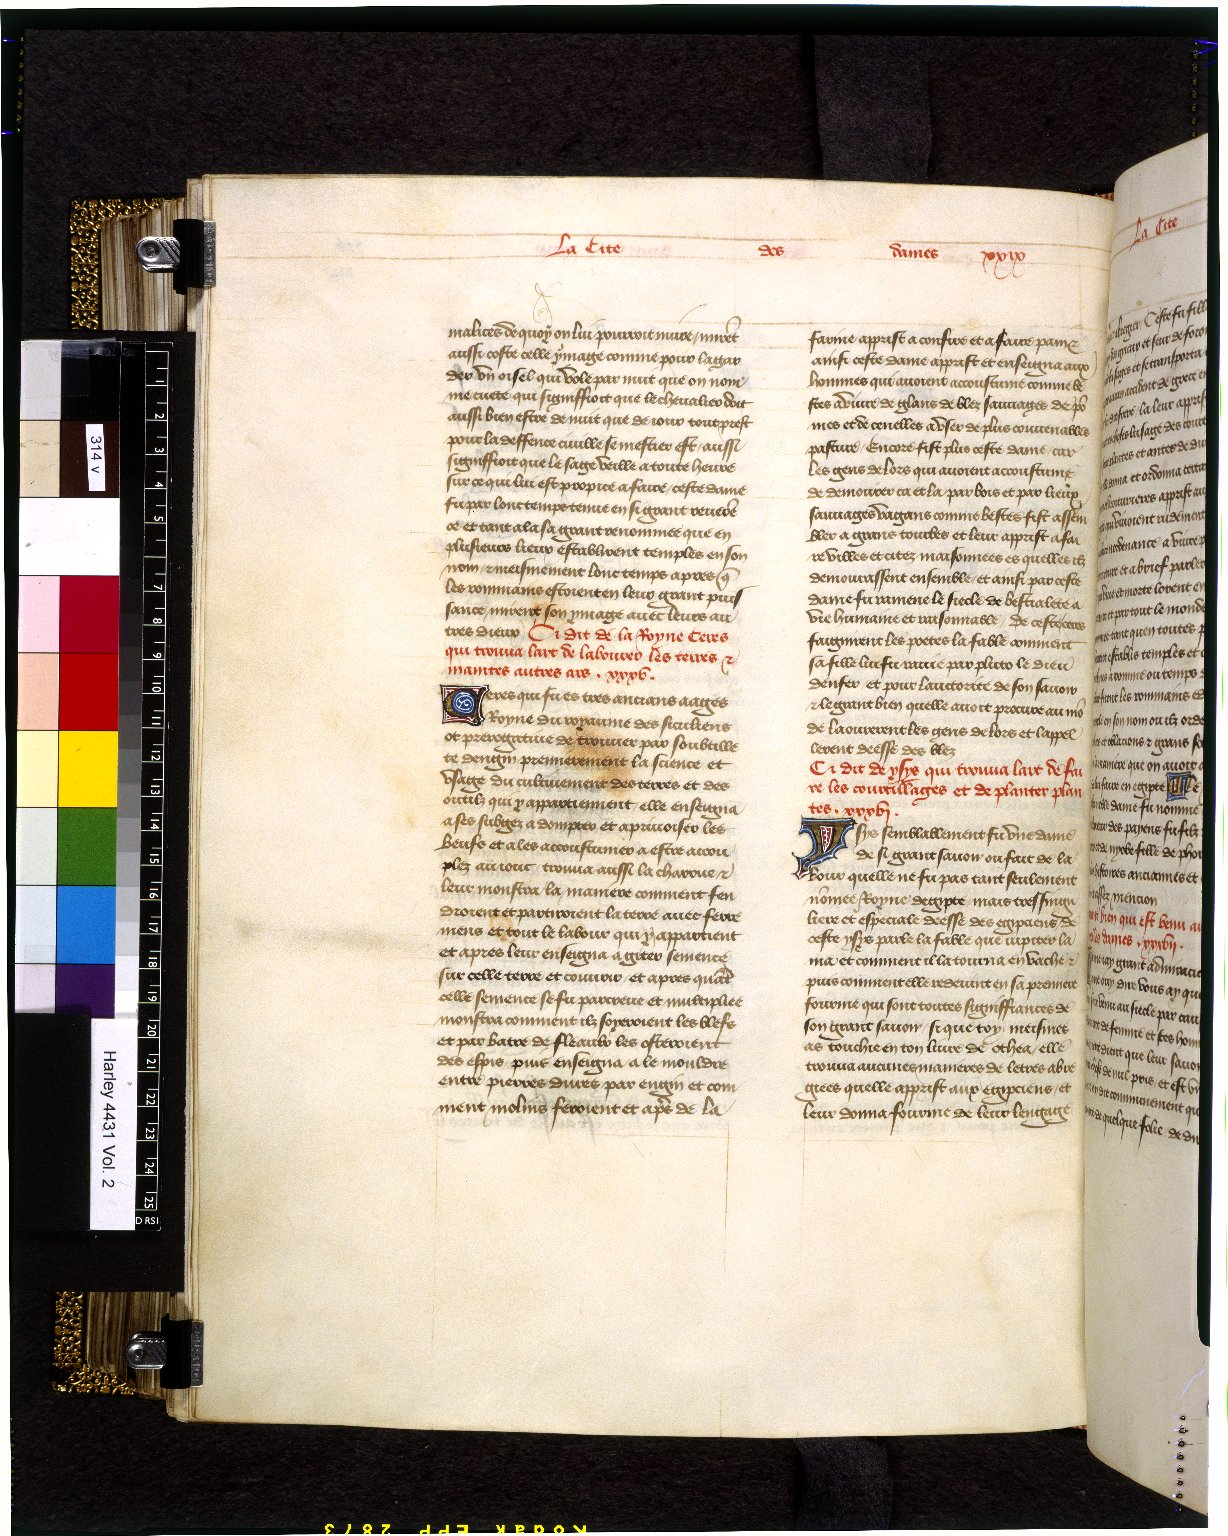 La Cite des dames xxix
malices de quoy on lui pourroit nuire / mirēt
aussi coste celle ymage comme pour la gar
der vn oisel qui vole par nuit que on nom
me cuete qui signiffioit que le chevalier doit
aussi bien estre de nuit que de iour tout prest
pour la deffence ciuille se mestier est / aussi
signiffioit que le sage veille a toute heure
sur ce qui lui est propice a faire / ceste dame
fu par lonc temps tenue en si grant reuerē
ce et tant ala sa grant renommee que en
plusieurs lieux establirent temples en son
nom / et meismement lonc temps apres q̄
les rommains estoient en leur grant puis
sance / mirent son ymage auec leurs au
tres dieux Ci dit de la Royne Ceres
qui trouua lart de labourer les terres et
maintes autres ars . xxxv .
Ceres qui fu es tres ancians aages
Royne du royaume des siciliens
ot prerogatiue de trouuer par soubtille
te dengin premierement la science et
vsage du cultiuement des terres et des
outilz qui y appartiennent / elle enseigna
a ses subgez a dompter et apriuoiser les
beufs et a les accoustumer a estre accou
plez au iouc / trouua aussi la charrue et
leur monstra la maniere comment fen
droient et partiroient la terre auec ferre
mens et tout le labour qui y appartient
et apres leur enseigna a giter semence
sur celle terre et couurir / et apres quāt
celle semence se fu parcreue et multipliee
monstra comment ilz soyeroient les blefs
et par batre de fleaulx les osteroient
des espis / puis enseigna a le mouldre
entre pierres dures par engin et com
ment molins feroient et ap̄s de la
farine apprist a confire et a faire pain et
ainsi ceste dame apprist et enseigna aux
hommes qui auoient accoustume comme be
stes a viure de glans de blez sauuages de pō
mes et de cenelles a vser de plus conuenables
pasture / Encore fist plus ceste dame / car
les gens de lors qui auoient accoustume
de demourer ca et la par bois et par lieux
sauuages vagans comme bestes fist assem
bler a grans tourbes et leur apprist a fai
re villes et citez maisonnees es quelles ilz
demourassent ensemble / et ainsi par ceste
dame fu ramene le siecle de bestialete a
vie humaine et raisonnable / De ceste ceres
faignirent les poetes la fable comment
sa fille lui fu rauie par pluto le dieu
denfer et pour lautorite de son sauoir
et le grant bien quelle auoit procure au mō
de laourerent les gens de lors et lappel
lerent deesse des blez
Ci dit de ysys qui trouua lart de fai
re les courtillages et de planter plan
tes . xxxvj .
Ysys semblablement fu vne dame
de si grant sauoir ou fait de la
bour quelle ne fu pas tant seulement
nōmee Royne degipte / mais tres singu
liere et especiale deesse des egipciens / de
ceste ysys parle la fable que iupiter la
ma et comment il la tourna en vache et
puis comment elle redeuint en sa premiere
fourme qui sont toutes signiffiances de
son grant sauoir / si que toy meismes
as touchie en ton liure de othea / elle
trouua aucunes manieres de letres abre
giees quelle apprist aux egipciens / et
leur donna fourme de leur lengage
La Cite
314 v
Harley 4431 Vol. 2